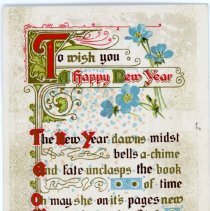 To wish you
A Happy New Year
The New Year dawns midst
bells a-chime
And fate unclasps the book
of time
Oh may she on its pages new